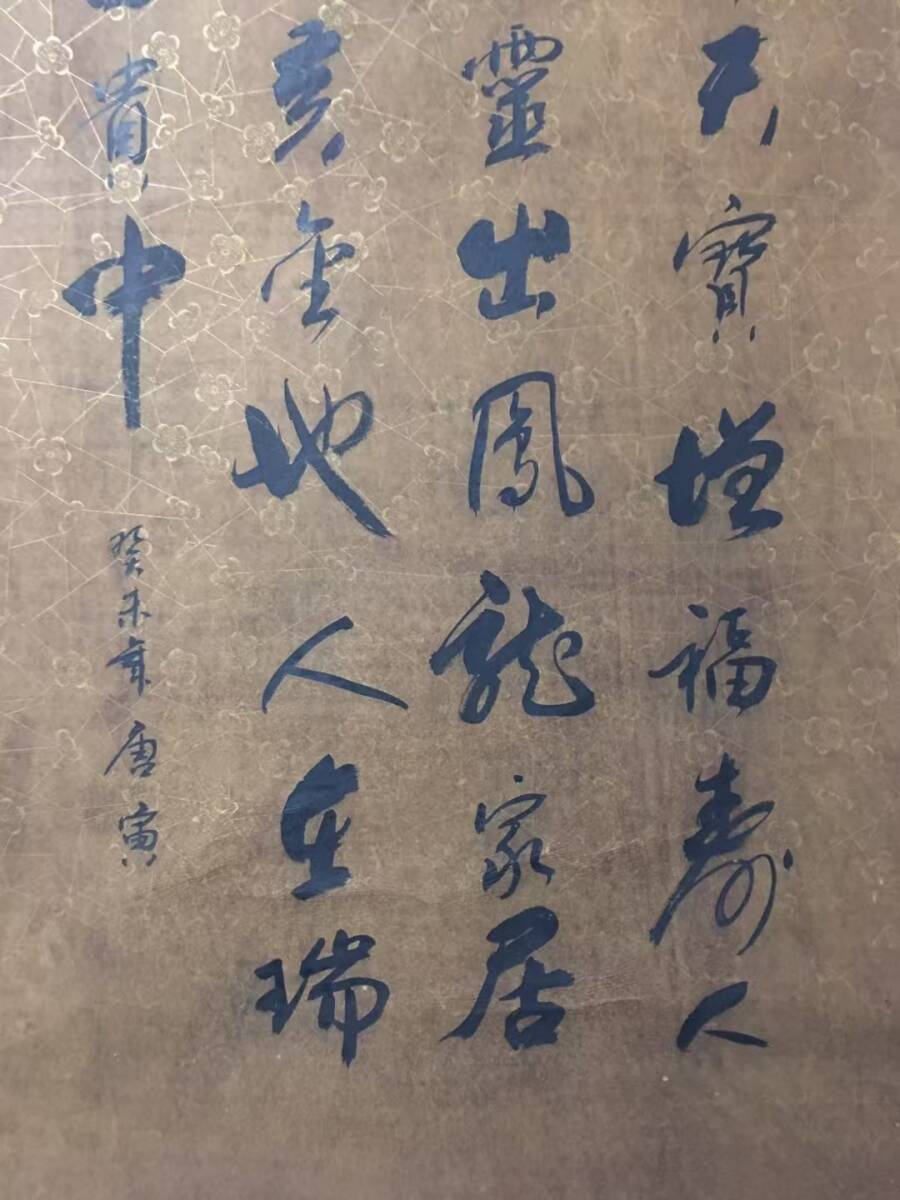 天寶增福壽人
靈出鳳龍家居
黃金地人在瑞
貴中
癸未年唐寅